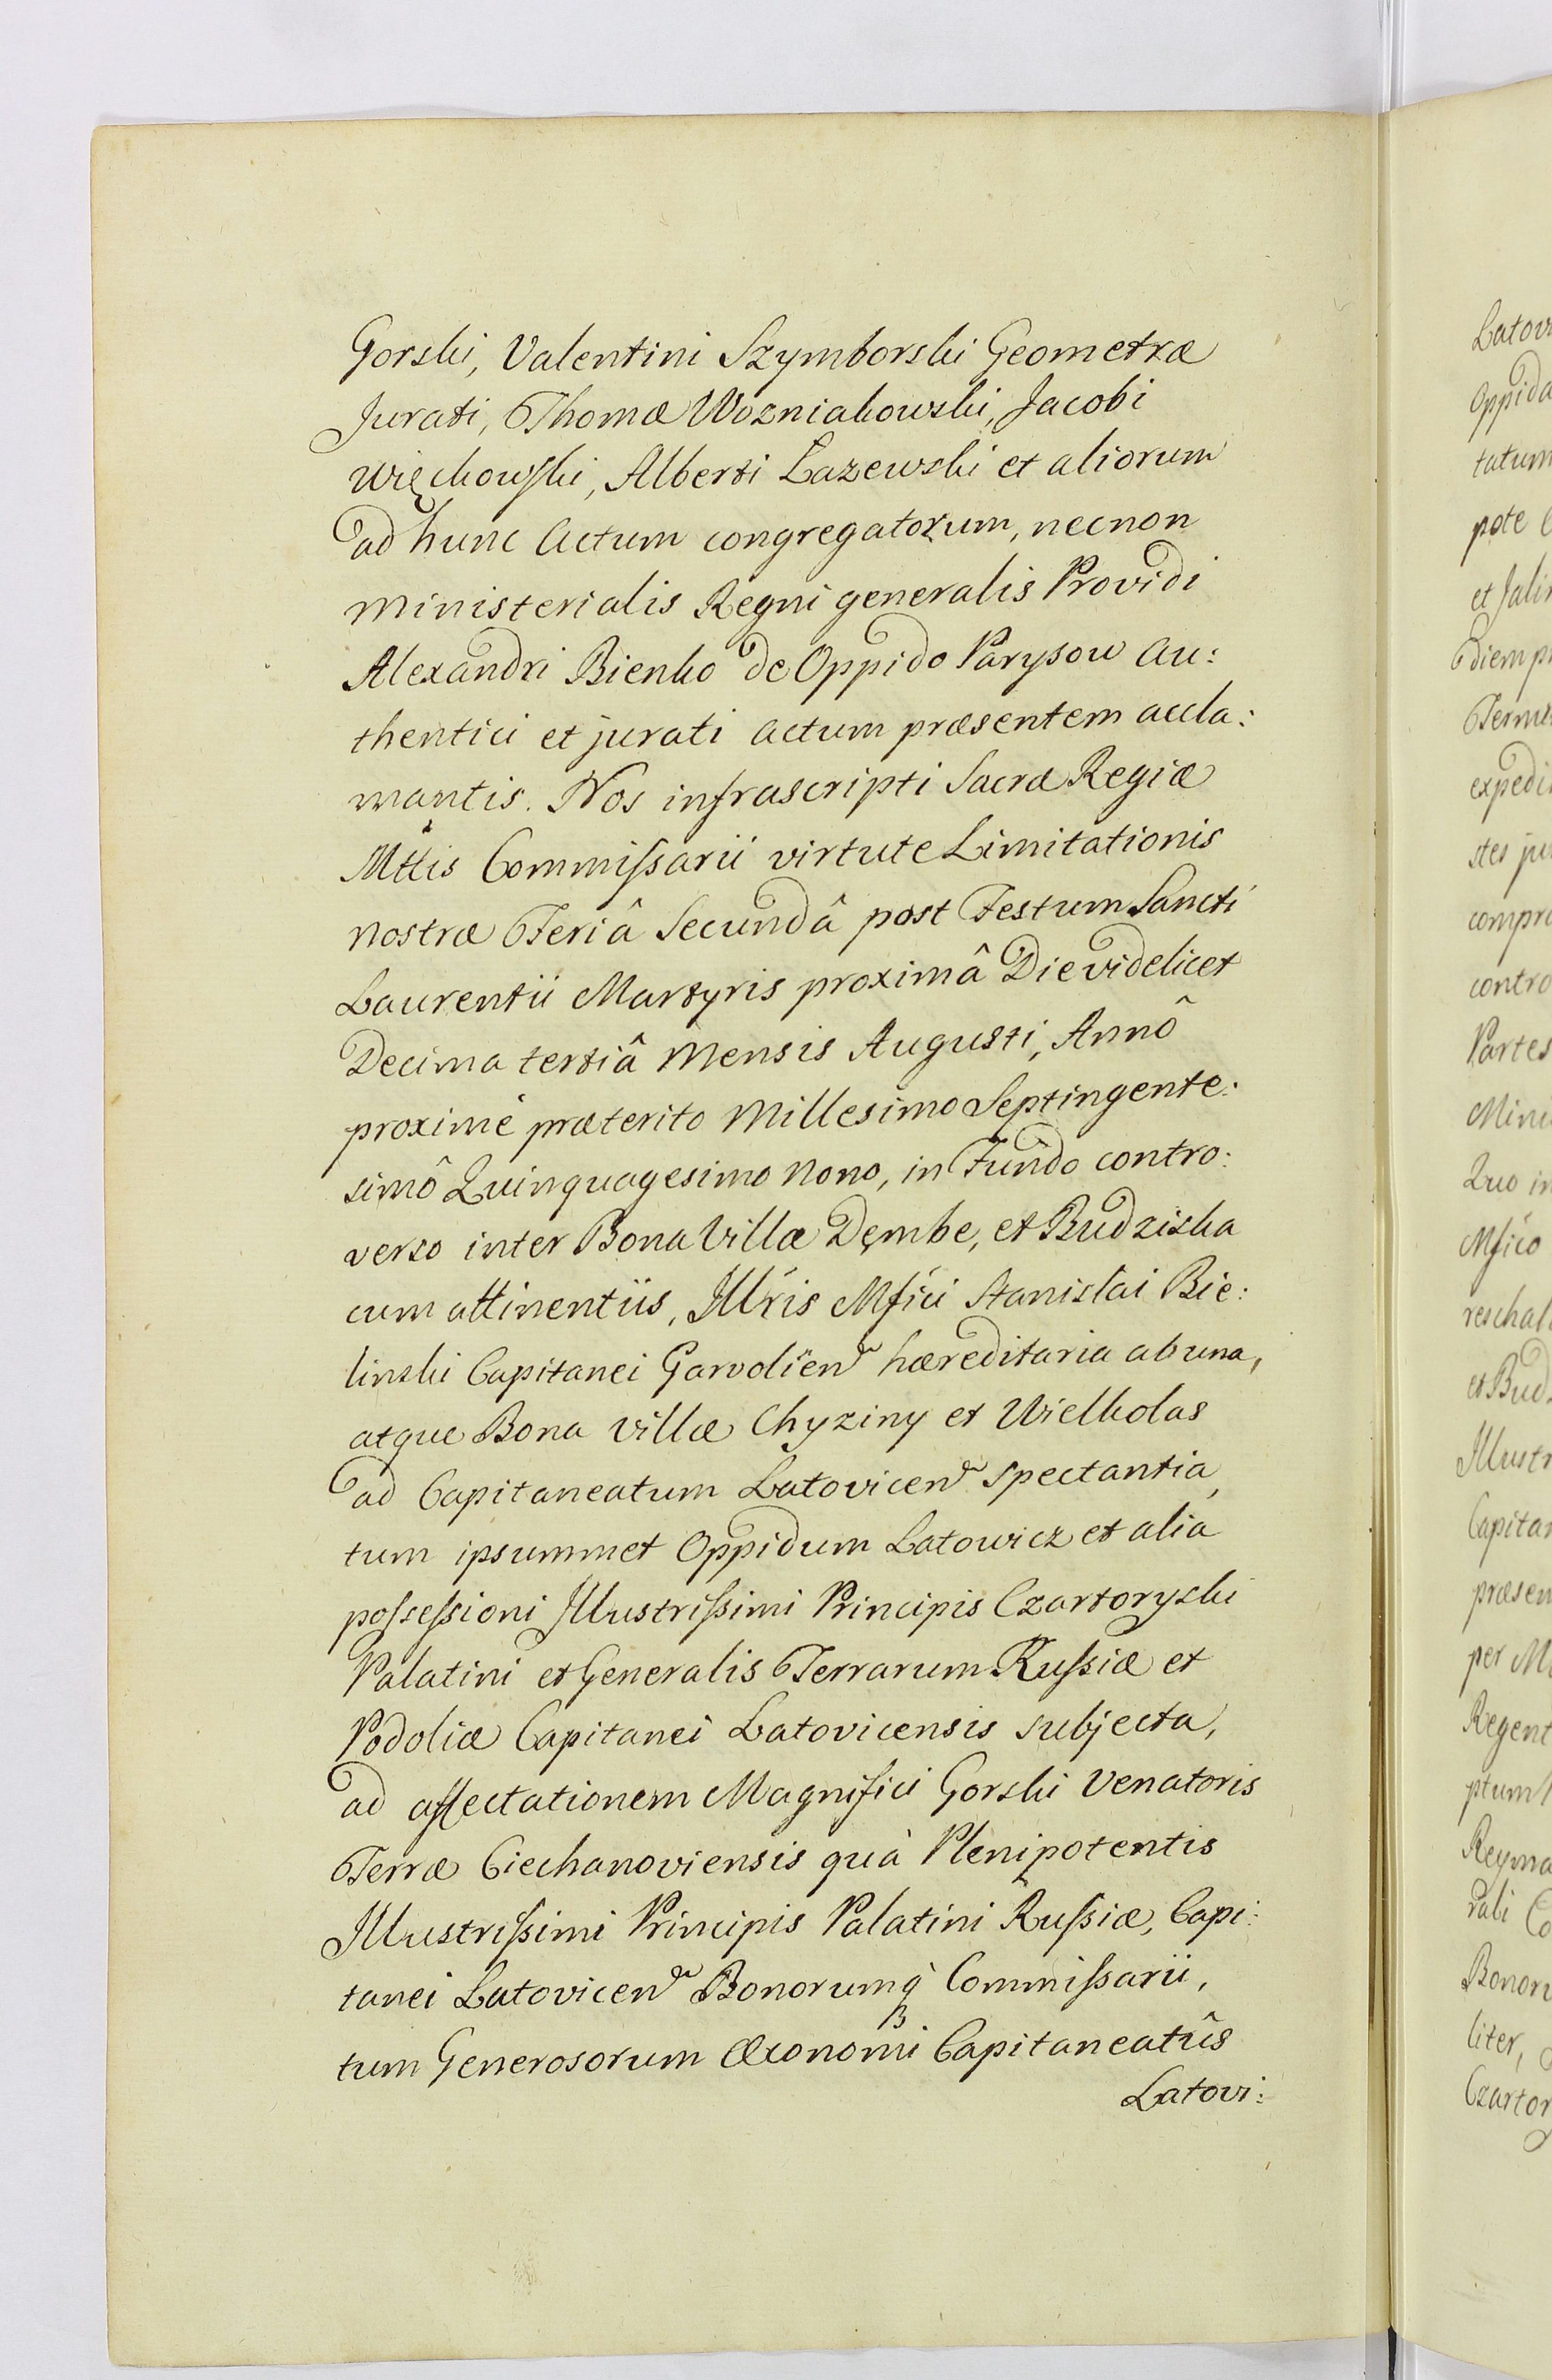 Gorski, Valentini Szymborski Geometræ
Jurati, Thomæ Wozniakowski, Jacobi
Więckowski, Alberti Lazewski et aliorum
ad hunc Actum congregatorum, necnon
Ministerialis Regni generalis Providi
Alexandri Bienko de Oppido Parysow Au:
thentici et jurati actum præsentem accla:
mantis. Nos infrascripti Sacræ Regiæ
Mttis Commissarii virtute Limitationis
nostræ Feriâ Secundâ post Festum Sancti
Laurentii Martyris proximâ Die videlicet
Decima tertiâ Mensis Augusti, Annô
proximè præterito Millesimo Septingente:
simô Quinquagesimo Nono, in Fundo contro:
verso inter Bona Villæ Dęmbe, et Budziska
cum attinentiis, Illris Mfici Stanislai Bie:
linski Capitanei Garvolien hæreditaria ab una,
atque Bona Villæ Chyziny et Wielkolas
ad Capitaneatum Latovicen spectantia,
tum ipsummet Oppidum Latowicz et alia
possessioni Illustrissimi Principis Czartoryski
Palatini et Generalis Terrarum Russiæ et
Podoliæ Capitanei Latovicensis subjecta,
ad affectationem Magnifici Gorski Venatoris
Terræ Ciechanoviensis quà Plenipotentis
Illustrissimi Principis Palatini Russiæ, Capi:
tanei Latovicen Bonorumq Commissarii,
tum Generosorum Œconomi Capitaneatûs
Latovi:
Latovi
Oppida
tatum
pote
et Jali
diem p
expedi
stes ju
compro
contro
Partes
Mini
Quo in
Mfico
reschal
et Bud
Illustr
Capita
præsen
per M
Regent
ptum
Reyma
rali Co
Bonoru
liter,
Czartor